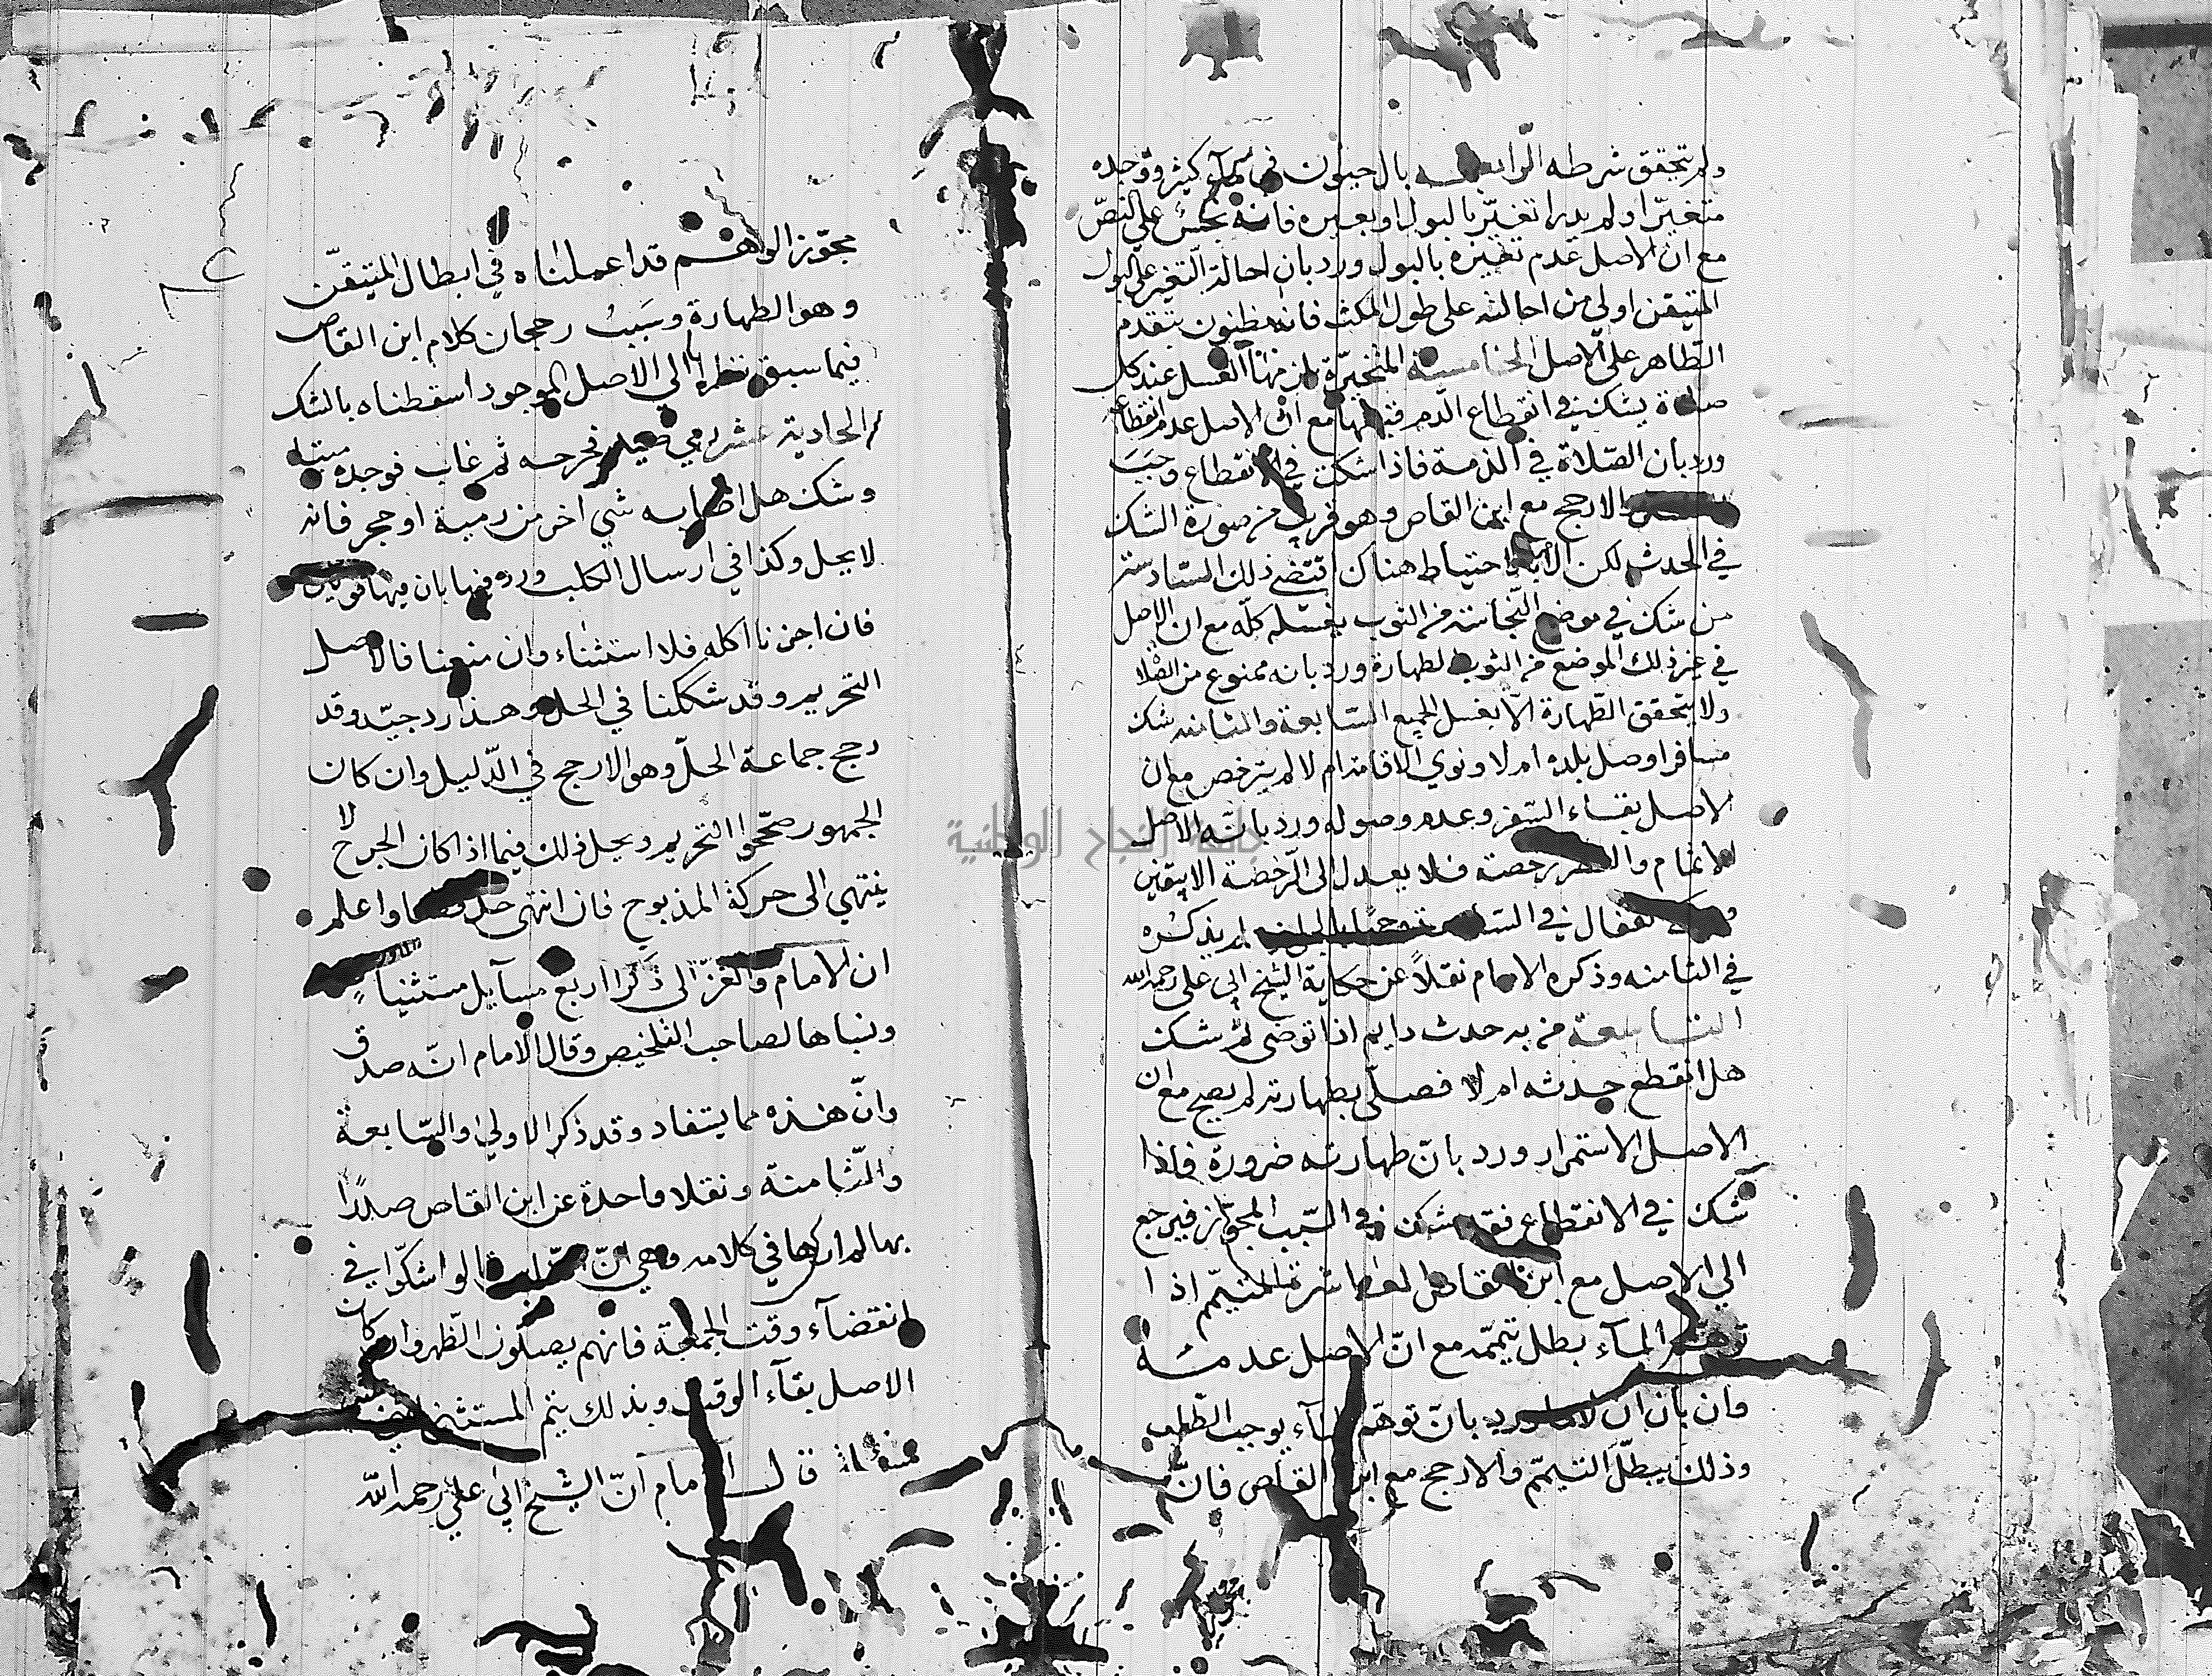 ولم يتحقق شرطه الرابعة بال حيوان في ماء كثير ووجده
متغيرا ولم يدر اتغير بالبول او بغيره فانه نجس على النص
مع ان الاصل عدم تغيره بالبول ورد بان احالة التغير على البول
المتيقن اولى من احالته على طول المكث فانه مظنون بتقدم
الظاهر على الاصل الخامسة المتحيرة يلزمها الغسل عند كل
صلاة يشك في انقطاع الدم قبلها مع ان الاصل عدم انقطاعه
ورد بان الصلاة في الذمة فاذا شكت في الانقطاع وجبت
والارجح مع ابن القاص وهو قريب من صورة الشك
في الحدث لكن الاحتياط هنا اقتضى ذلك السادسة
من شك في موضع النجاسة من الثوب يغسله كله مع ان الاصل
في غير ذلك الموضع من الثوب الطهارة ورد بانه ممنوع من الصلاة
ولا يتحقق الطهارة الا بغسل الجميع السابعة والثامنة شك
مسافر اوصل بلده ام لا ونوى الاقامة ام لا لم يترخص مع ان
الاصل بقاء السفر وعدم وصوله ورد بانه الاصل
للاتمام والقصر رخصة فلا يعدل الى الرخصة الا بيقين
القفال في لم يذكره
في الثامنة وذكره الامام نقلا عن حكاية الشيخ ابي علي رحمه الله
التاسعة من به حدث دايم اذا توضى ثم شك
هل انقطع حدثه ام لا فصلى بطهارته لم يصح مع ان
الاصل الاستمرار ورد بان طهارته ضرورة فاذا
شك في الانقطاع فقد شك في السبب المجوز فيرجع
الى الاصل مع ابن القاص العاشرة المتيمم اذا
توهم الماء بطل تيممه مع ان الاصل عدمه
وان بان ان لا ماء ورد بان توهم الماء يوجب الطلب
وذلك يبطل التيمم والارجح مع ابن القاص فان
مجوز الوهم قد اعملناه في ابطال المتيقن
وهو الطهارة وسبب رجحان كلام ابن القاص
فيما سبق نظرا الى الاصل الموجود اسقطناه بالشك
الحادية عشر رمي صيدا فجرحه ثم غاب فوجده ميتا
وشك هل اصابه شي اخر من رمية او حجر فانه
لا يحل وكذا في ارسال الكلب ورد فيها بان فيها قولين
فان اجزنا اكله فلا استثناء وان منعنا فالاصل
التحريم وقد شككنا في الحل وهذا رد جيد وقد
رجح جماعة الحل وهو الارجح في الدليل وان كان
الجمهور صححوا التحريم ومحل ذلك فيما اذا كان الجرح لا
ينتهي الى حركة المذبوح فان انتهى حل قطعا واعلم
ان الامام والغزالي ذكرا اربع مسآيل مستثنيات
ونسباها لصاحب التلخيص وقال الامام انه صدق
وان هذه مما يستفاد وقد ذكر الاولى والسابعة
والثامنة ونقلا واحدة عن ابن القاص
بها لم ارها في كلامه وهي ان الناس لو اشكوا في
انقضآء وقت الجمعة فانهم يصلون الظهر وان كان
الاصل بقآء الوقت وبذلك يتم المستثنى
مسئلة قال الامام ان الشيخ ابي علي رحمه الله